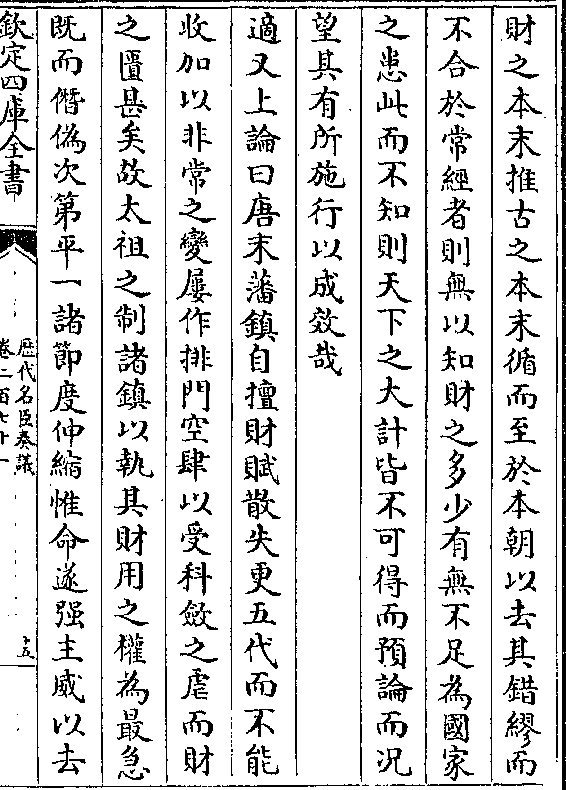 財之本末推古之本末循而至於本朝以去其錯繆而
不合於常經者則無以知財之多少有無不足為國家
之患此而不知則天下之大計皆不可得而預論而况
望其有所施行以成效哉
適又上論曰唐末藩鎮自擅財賦散失更五代而不能
收加以非常之變屢作排門空肆以受科斂之虐而財
之匱甚矣故太祖之制諸鎮以執其財用之權為最急
既而僭偽次第平一諸節度伸縮惟命遂强主威以去
欽定四庫全書
歴代名臣奏議
卷二百七十一
十五